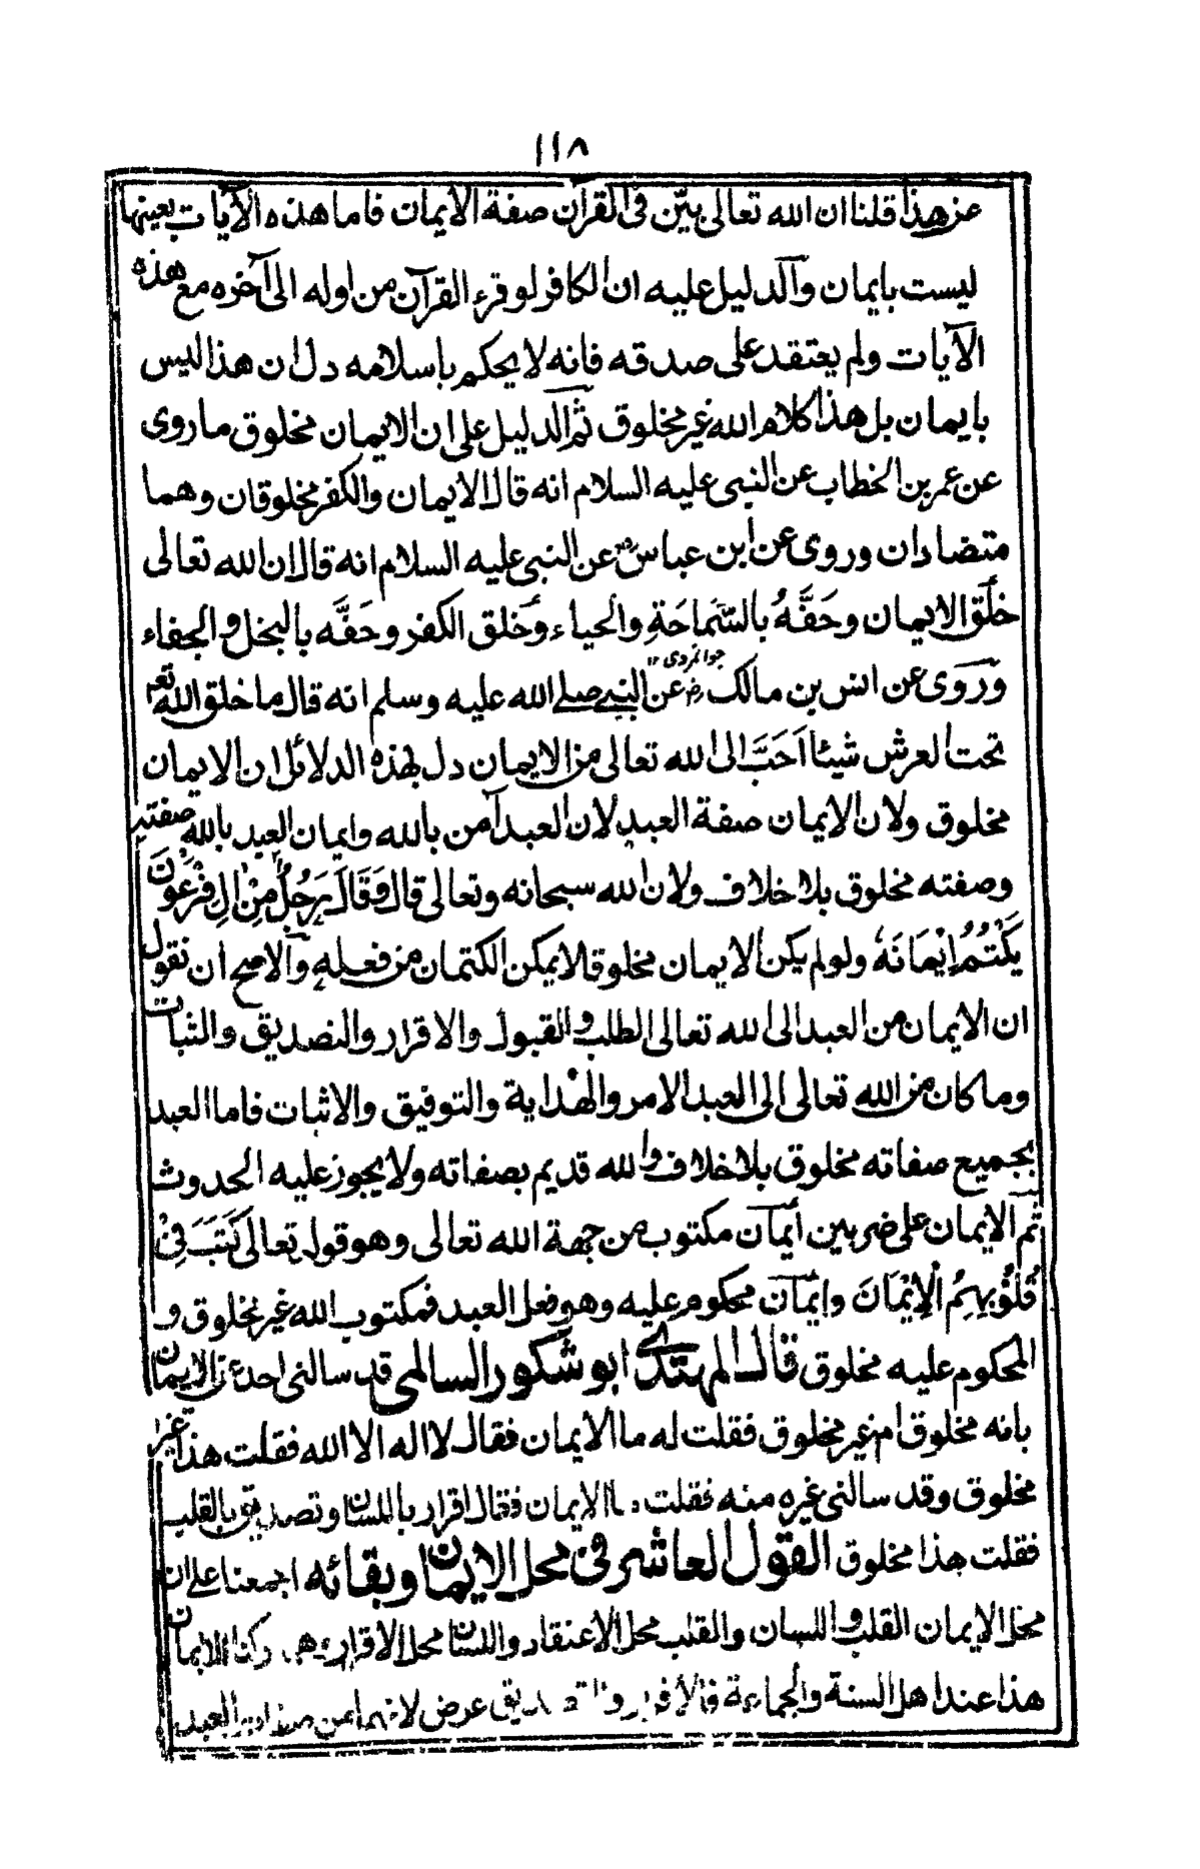 ١١٨
عن هذا قلنا ان الله تعالى بيّن فى القرآن صفة الايمان فاما هذه الآيات بعينها
ليست بايمان والدليل عليه ان الكافر لو قرء القرآن من اوله الى آخره مع هذه
الآيات ولم يعتقد على صدقه فانه لا يحكم باسلامه دل ان هذا ليس
بايمان بل هذا كلام الله غير مخلوق ثم الدليل على ان الايمان مخلوق ما روى
عن عمر بن الخطاب عن النبى عليه السلام انه قال الايمان والكفر مخلوقان وهما
متضادان وروى عن ابن عباس رض عن النبى عليه السلام انه قال ان الله تعالى
خلق الايمان وحَفَّهُ بالسَّمَاحَةِ والحياء وخلق الكفر وحَفَّه بالبخل والجفاء
جوانمردى ١٢
وروى عن انس بن مالك رض عن النبى صلى الله عليه وسلم انه قال ما خلق الله تعـ
تحت العرش شيئا اَحَبَّ الى الله تعالى من الايمان دل بهذه الدلائل ان الايمان
مخلوق ولان الايمان صفة العبد لان العبد آمن بالله وايمان العبد بالله صفته
وصفته مخلوق بلا خلاف ولان الله سبحانه وتعالى قال وَقَالَ رَجُلٌ مِنْ اٰلِ فِرْعَوْنَ
يَكْتُمُ اِيْمَانَهٗ ولو لم يكن الايمان مخلوقا لا يمكن الكتمان من فعله والاصح ان نقول
ان الايمان من العبد الى الله تعالى الطلب والقبول والاقرار والتصديق والثبات
وما كان من الله تعالى الى العبد الامر والهداية والتوفيق والاثبات فاما العبد
بجميع صفاته مخلوق بلا خلاف والله قديم بصفاته ولا يجوز عليه الحدوث
ثم الايمان على ضربين ايمان مكتوب من جهة الله تعالى وهو قوله تعالى كَتَبَ فِىْ
قُلُوْبِهِمُ الْاِيْمَانَ وايمان محكوم عليه وهو فعل العبد فمكتوب الله غير مخلوق و
المحكوم عليه مخلوق قال المهتدى ابو شكور السالمى قد سالنى احد عن الايمان
بانه مخلوق ام غير مخلوق فقلت له ما الايمان فقال لا اله الا الله فقلت هذا غير
مخلوق وقد سالنى غيره منه فقلت ما الايمان فقال اقرار باللسان وتصديق بالقلب
فقلت هذا مخلوق القول العاشر فى محل الايمان وبقائه اجمعنا على ان
محل الايمان القلب واللسان والقلب محل الاعتقاد واللسان محل الاقرار ركنا الايمان
هذا عند اهل السنة والجماعة عرض لانهما من العبد